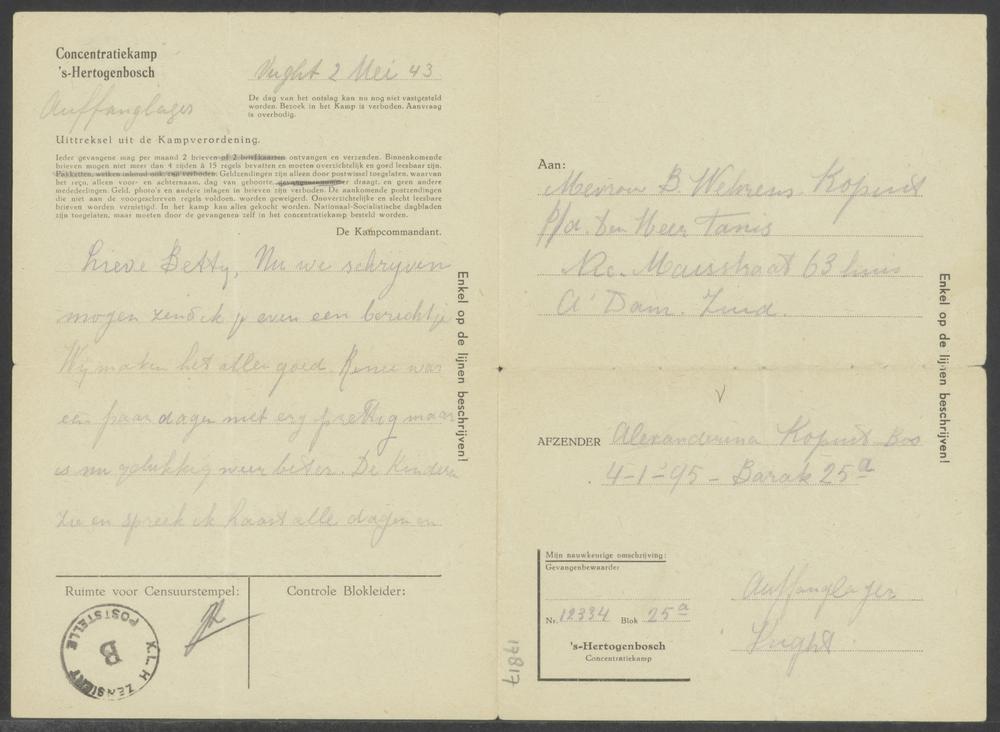 Concentratiekamp
's-Hertogenbosch
Vught 2 Mei 43
Auffanglager
De dag van het ontslag kan nu nog niet vastgesteld
worden. Bezoek in het Kamp is verboden. Aanvraag
is overbodig.
Uittreksel uit de Kampverordening.
Ieder gevangene mag per maand 2 brieven of 2 briefkaarten ontvangen en verzenden. Binnenkomende
brieven mogen niet meer dan 4 zijden à 15 regels bevatten en moeten overzichtelijk en goed leesbaar zijn.
Pakketten, welken inhoud ook, zijn verboden. Geldzendingen zijn alleen door postwissel toegelaten, waarvan
het reçu, alleen voor- en achternaam, dag van geboorte, gevangenenummer draagt, en geen andere
mededelingen. Geld, photo's en andere inlagen in brieven zijn verboden. De aankomende postzendingen
die niet aan de voorgeschreven regels voldoen, worden geweigerd. Onoverzichtelijke en slecht leesbare
brieven worden vernietigd. In het kamp kan alles gekocht worden. Nationaal-Socialistische dagbladen
zijn toegelaten, maar moeten door de gevangenen zelf in het concentratiekamp besteld worden.
De Kampcommandant.
Lieve Betty, Nu we schrijven
mogen zend ik je even een berichtje
Wij maken het allen goed. Renee was
een paar dagen niet erg prettig maar
is nu gelukkig weer beter. De Kinderen
zie en spreek ik haast alle dagen en
Enkel op de lijnen beschrijven!
Ruimte voor Censuurstempel:
Controle Blokleider:
POSTSTELLE
B
K.L.H. ZENSIERT
Aan:
Mevrou B. Wehrens Kopuit
p/a. Den Heer Tanis
Nic. Maesstraat 63 huis
A'Dam. Zuid.
Enkel op de lijnen beschrijven!
AFZENDER Alexanderina Kopuit Boo
4-1-95 - Barak 25a
Mijn nauwkeurige omschrijving:
Gevangenbewaarder
Nr. 12334 Blok 25a
's-Hertogenbosch
Concentratiekamp
Auffanglager
Vught
17817